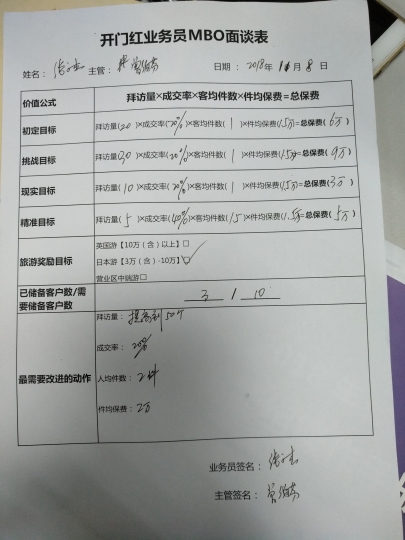 开门红业务员MBO面谈表
姓名： 主管： 日期：2018年11月8日
价值公式 拜访量×成交率×客均件数×件均保费=总保费
初定目标 拜访量(20)×成交率(20%)×客均件数(1)×件均保费(1.5万)=总保费(6万)
挑战目标 拜访量(30)×成交率(20%)×客均件数(1)×件均保费(1.5万)=总保费(9万)
现实目标 拜访量(10)×成交率(20%)×客均件数(1)×件均保费(1.5万)=总保费(3万)
精准目标 拜访量(5)×成交率(40%)×客均件数(1.5)×件均保费(1.5万)=总保费(5万)
旅游奖励目标
英国游【10万（含）以上】□
日本游【3万（含）-10万】□✓
营业区中端游□
已储备客户数/需要储备客户数 3 / 10
最需要改进的动作
拜访量：提高到50个
成交率：20%
人均件数：2件
件均保费：2万
业务员签名：
主管签名：